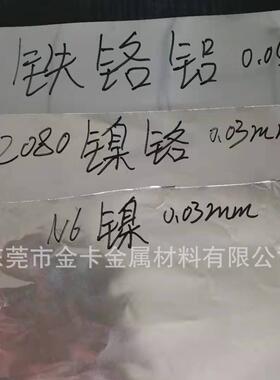 铁铬铝 0.0
2080镍铬 0.03m
N6镍 0.03mm
东莞市金卡金属材料有限公